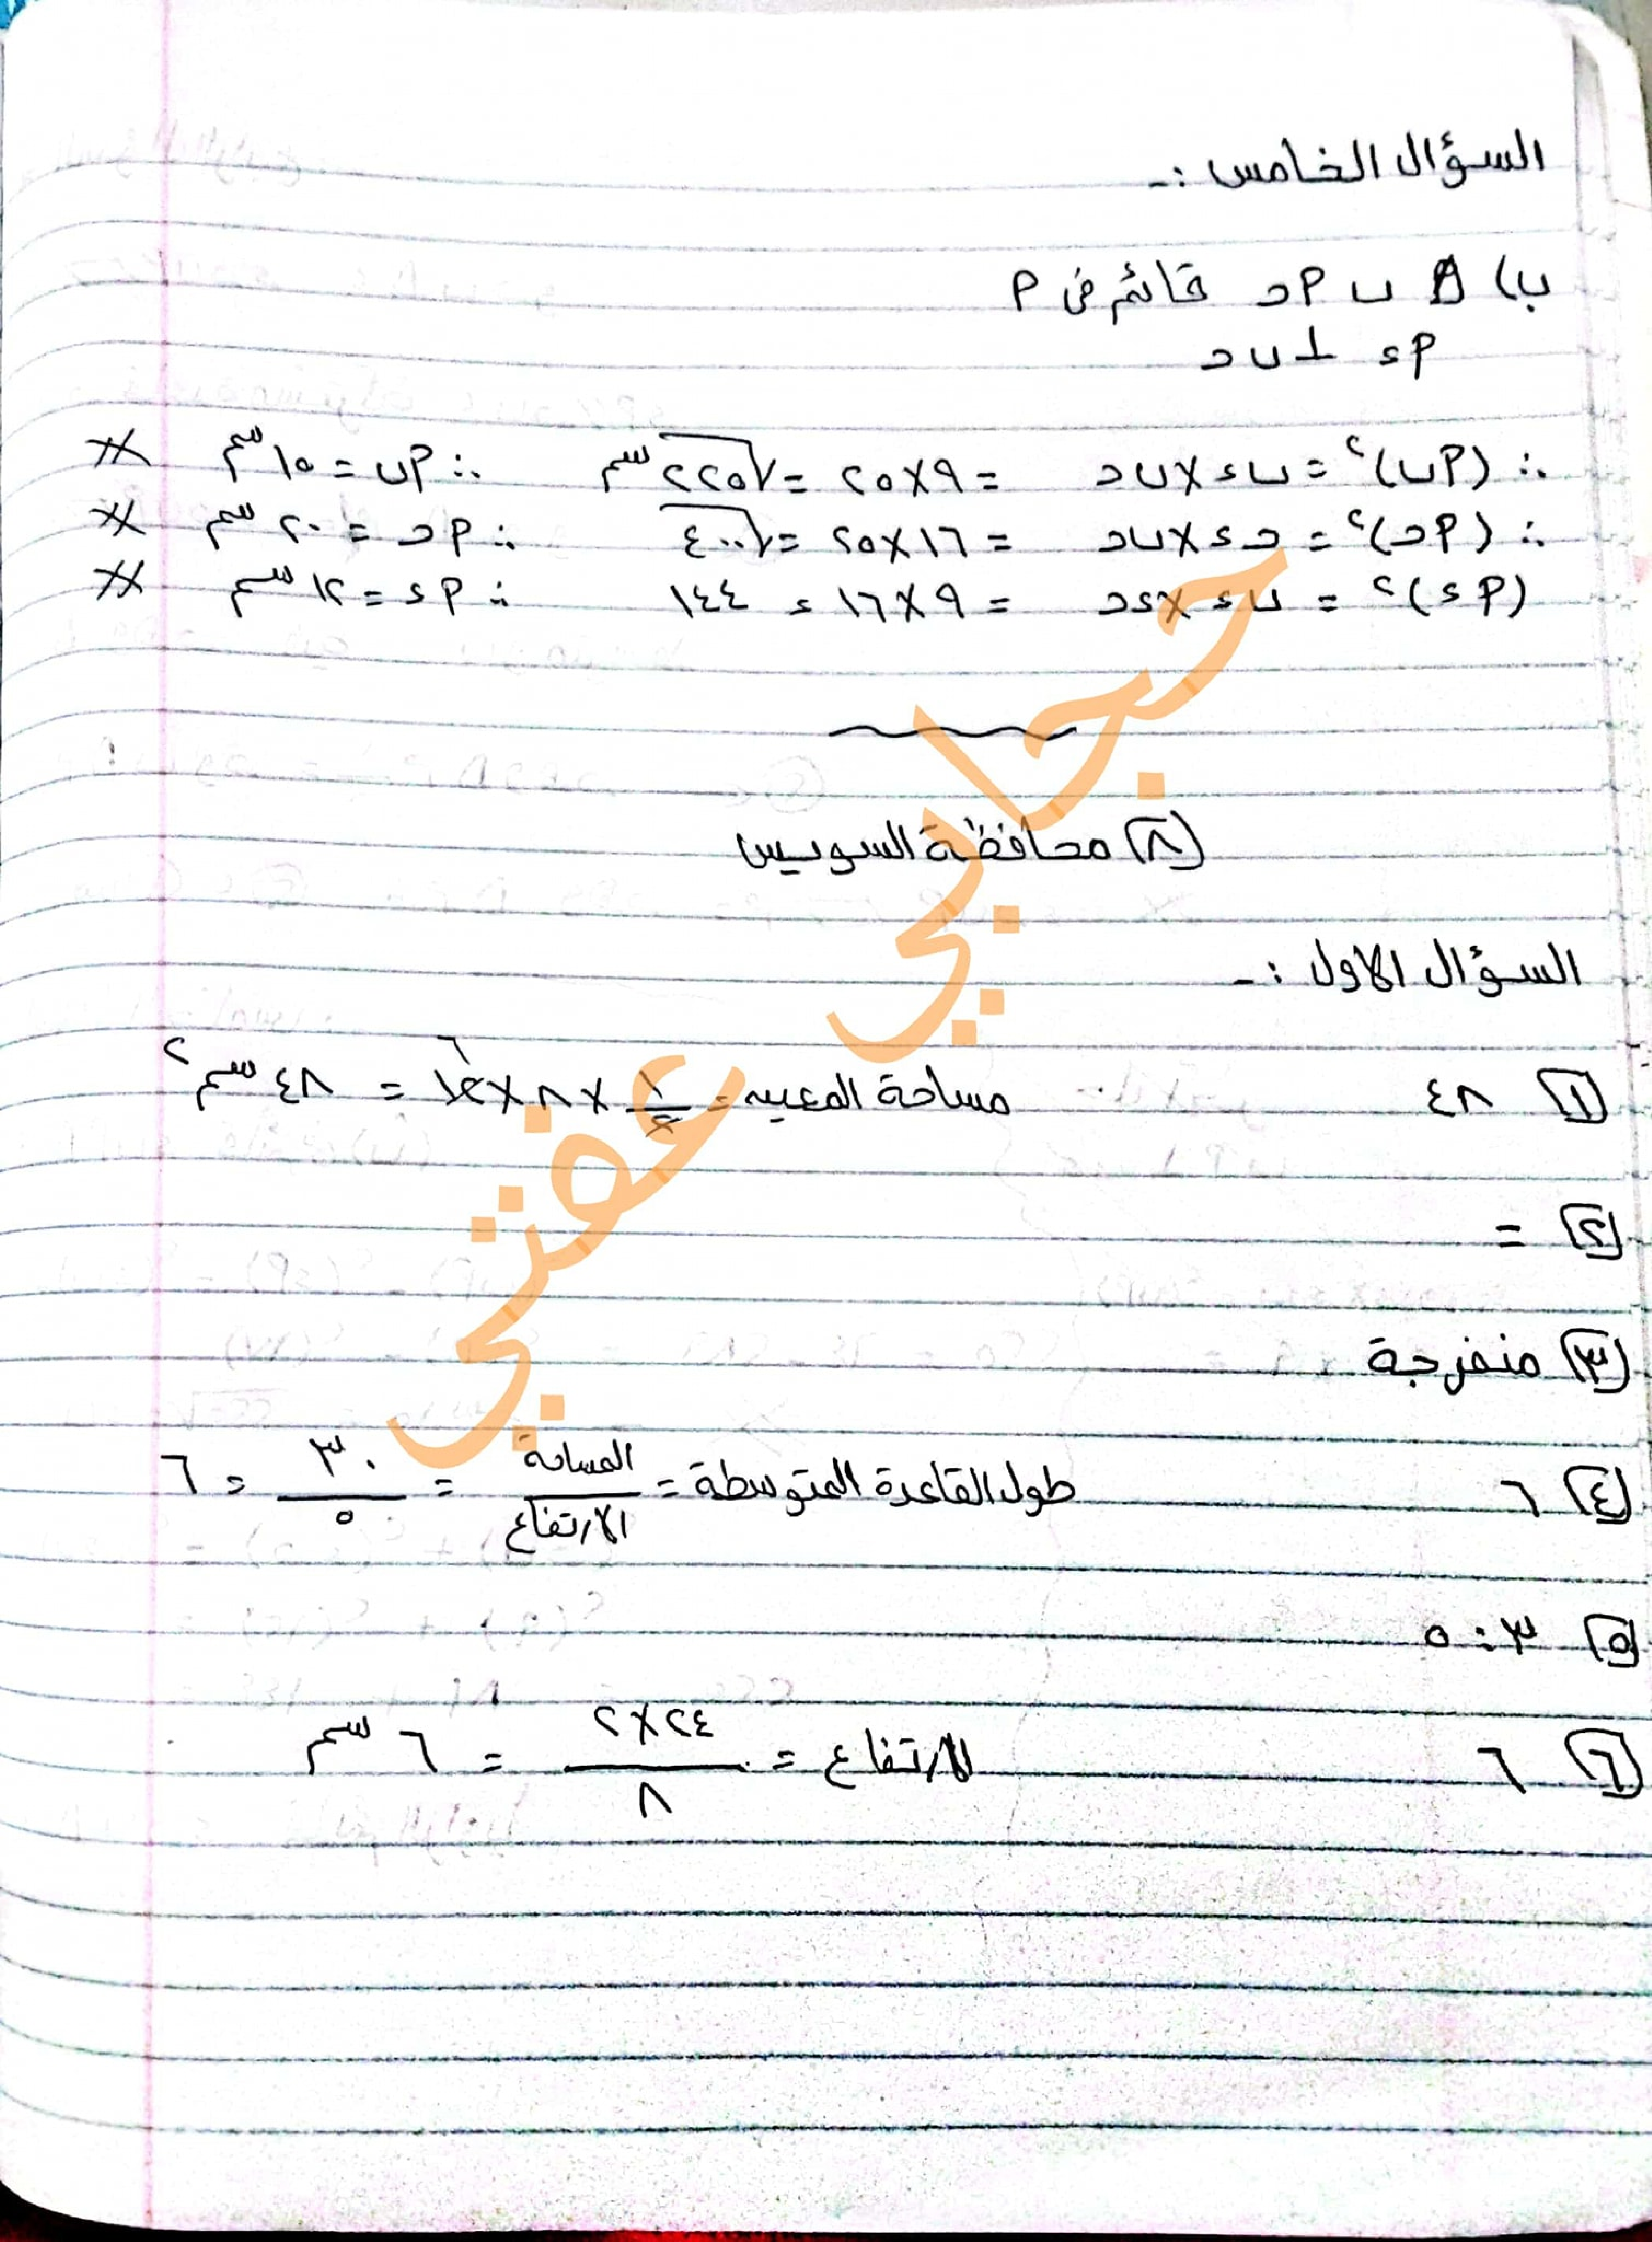 السؤال الخامس :-
ب) △ ب أ حـ قائم فى أ
أ ء ⊥ ب حـ
∴ (أب)² = ب ء × ب حـ = ٩ × ٢٥ = √٢٢٥ سم ∴ أب = ١٥ سم
∴ (أحـ)² = حـ ء × ب حـ = ١٦ × ٢٥ = √٤٠٠ ∴ أحـ = ٢٠ سم
(أ ء)² = ب ء × ء حـ = ٩ × ١٦ = ١٤٤ ∴ أ ء = ١٢ سم
٨ محافظة السويس
السؤال الاول :-
١ ٤٨ مساحة المعين = ١/٢ × ٨ × ١٢ = ٤٨ سم²
٢ =
٣ منفرجة
٤ ٦ طول القاعدة المتوسطة = المساحة / الارتفاع = ٣٠ / ٥ = ٦
٥ ٣ : ٥
٦ ٦ الارتفاع = ٢٤ × ٢ / ٨ = ٦ سم
حجابي عفتي